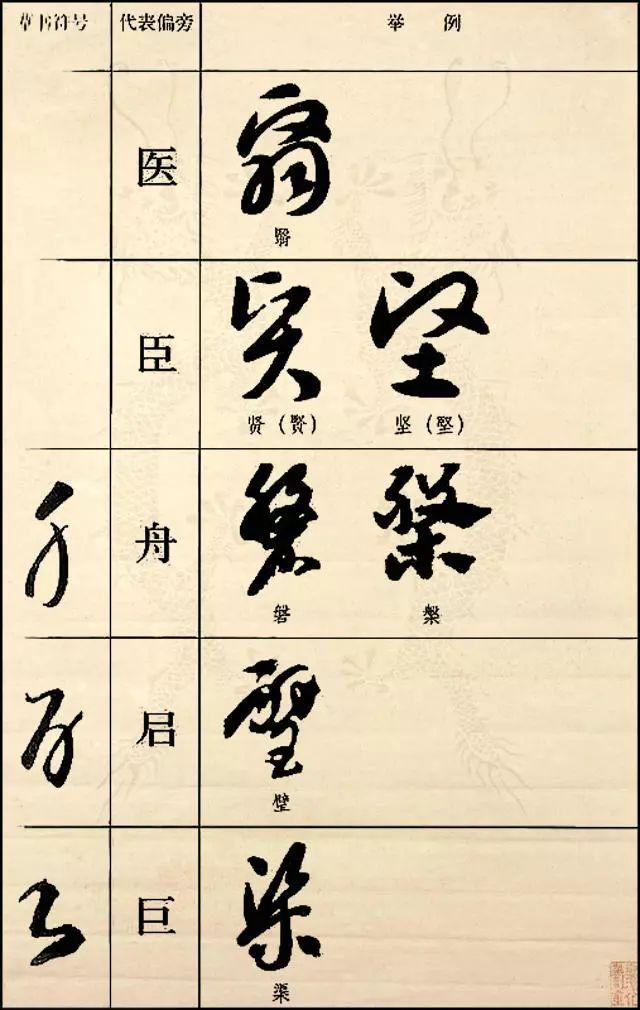 草书符号 代表偏旁 举例
医
臣
贤（賢） 坚（堅）
舟
磐 槃
启
璧
巨
渠